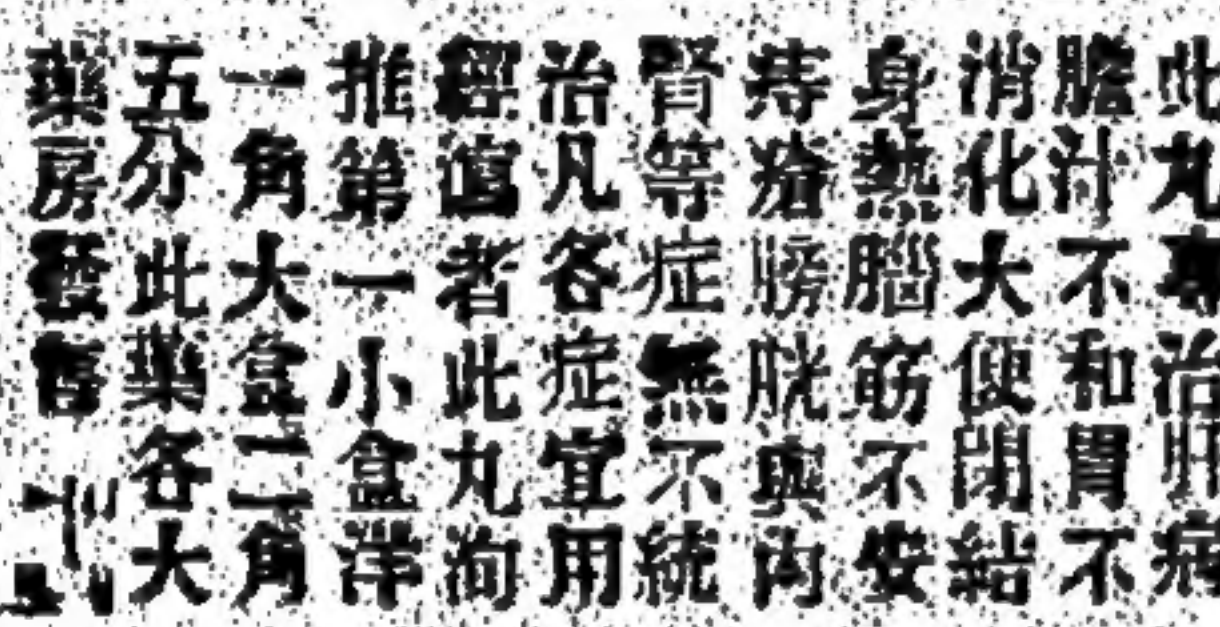 此丸專治肝病
膽汁不和胃不
消化大便閉結
身熱腦筋不安
痔瘡膀胱與內
腎等症無不統
治凡各症宜用
者此丸洵
推第一小盒洋
一角大盒二角
五分此藥各大
藥房